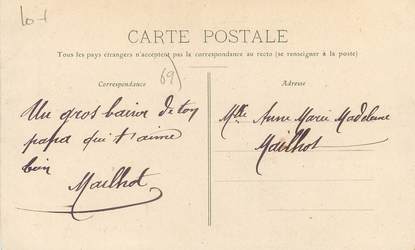 Lot
CARTE POSTALE
Tous les pays étrangers n'acceptent pas la correspondance au recto (se renseigner à la poste)
69)
Correspondance
Un gros baiser de ton
papa qui t'aime
bien
Mailhot
Adresse
Mlle Anne Marie Madeleine
Mailhot